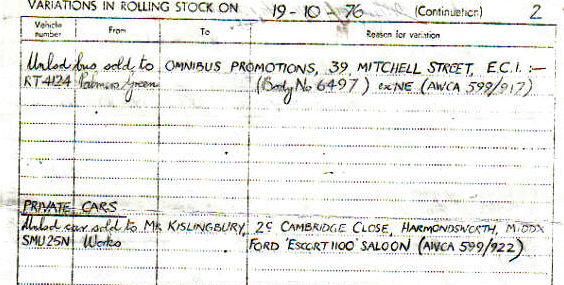 VARIATIONS IN ROLLING STOCK ON 19-10-76 (Continuation) 2
Vehicle number From To Reason for variation
Unlsd bus sold to OMNIBUS PROMOTIONS, 39, MITCHELL STREET, E.C.1. :-
RT4124 Palmers Green (Body No 6497) ex NE (AWCA 599/917)
PRIVATE CARS
Unlsd car sold to MR KISLINGBURY, 2C CAMBRIDGE CLOSE, HARMONDSWORTH, MIDDX
SMU25N Works FORD 'ESCORT 1100' SALOON (AWCA 599/922)